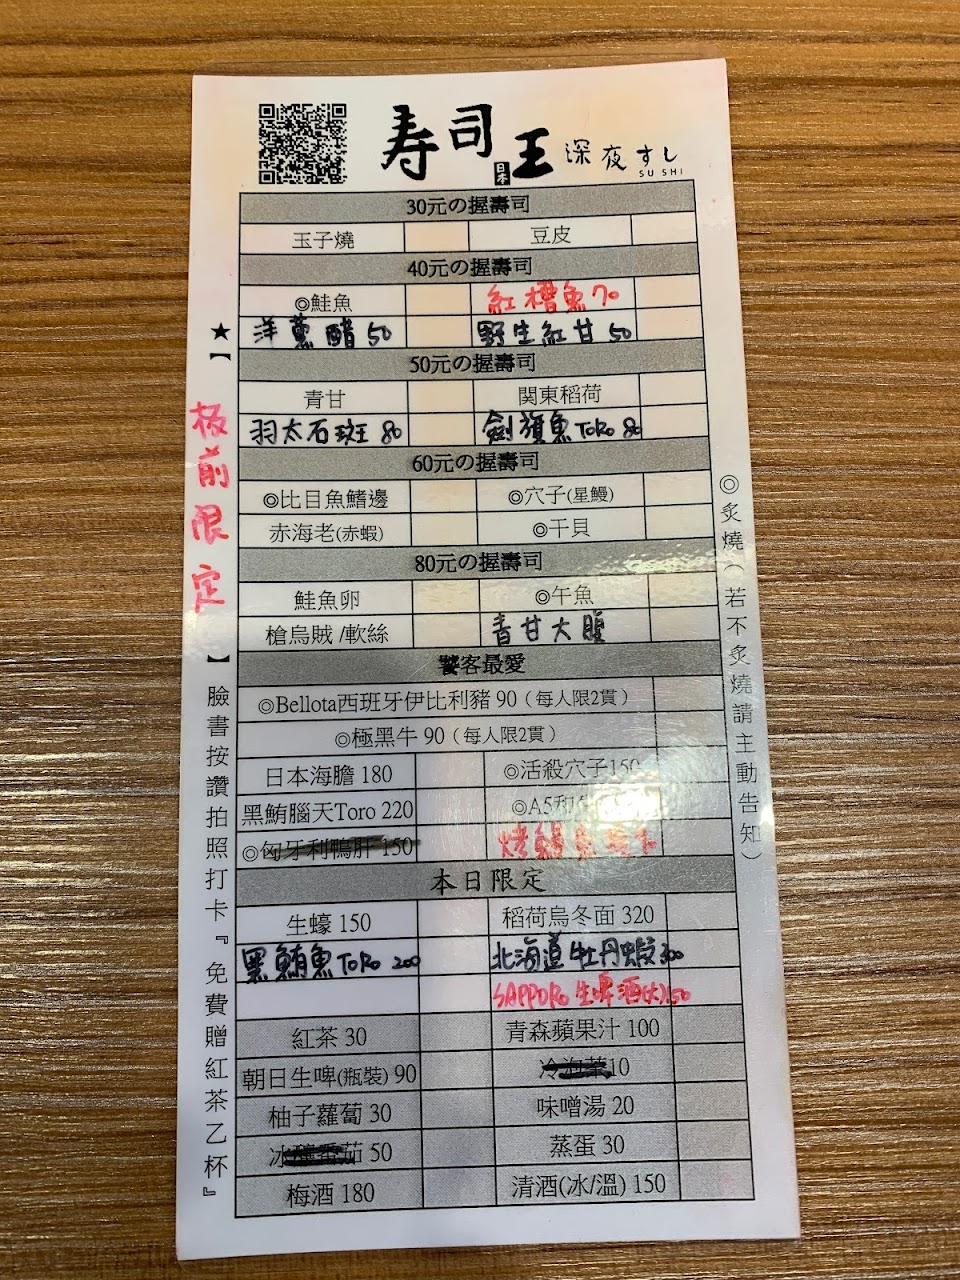 寿司王 日本 深夜すし
SU SHI
30元の握壽司
玉子燒 豆皮
40元の握壽司
◎鮭魚 紅槽魚70
洋蔥醋50 野生紅甘50
50元の握壽司
青甘 関東稻荷
羽太石斑80 劍旗魚ToRo 80
60元の握壽司
◎比目魚鰭邊 ◎穴子(星鰻)
赤海老(赤蝦) ◎干貝
80元の握壽司
鮭魚卵 ◎午魚
槍烏賊/軟絲 青甘大腹
饕客最愛
◎Bellota西班牙伊比利豬 90(每人限2貫)
◎極黑牛 90(每人限2貫)
日本海膽 180 ◎活殺穴子150
黑鮪腦天Toro 220 ◎A5和
◎匈牙利鴨肝 150 烤鰻魚
本日限定
生蠔 150 稻荷烏冬面 320
黑鮪魚ToRo 200 北海道牡丹蝦300
SAPPORO生啤酒(大)150
紅茶 30 青森蘋果汁 100
朝日生啤(瓶裝) 90 冷泡菜10
柚子蘿蔔 30 味噌湯 20
冰釀番茄 50 蒸蛋 30
梅酒 180 清酒(冰/溫) 150
★【板前限定】臉書按讚拍照打卡『免費贈紅茶乙杯』
◎炙燒(若不炙燒請主動告知)